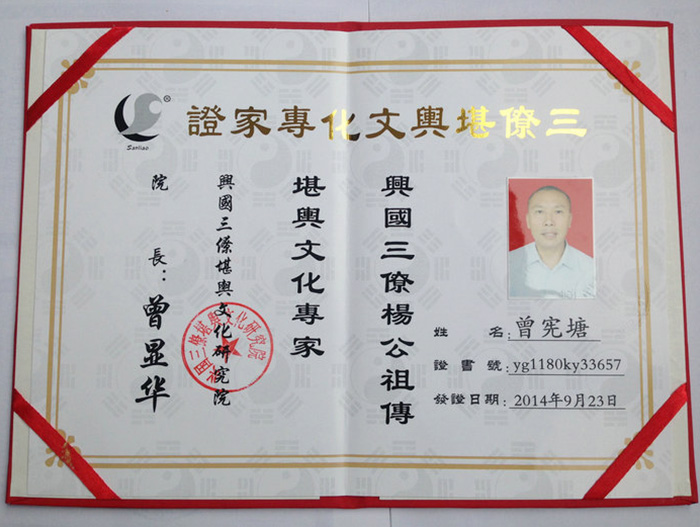 三僚堪輿文化專家證
Sanliao
姓 名：曾宪塘
證 書 號：yg1180ky33657
發證日期：2014年9月23日
興國三僚楊公祖傳
堪輿文化專家
興國三僚堪輿文化研究院
院 長：曾显华
興國三僚堪輿文化研究院